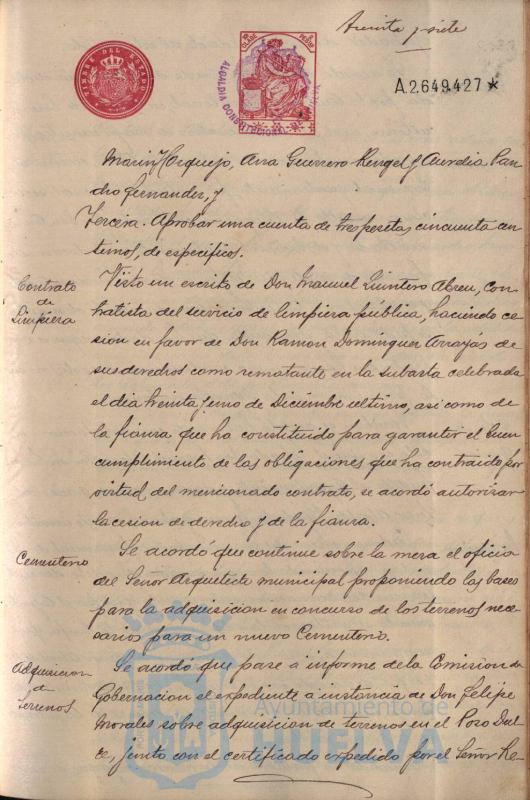 treinta y siete
TIMBRE DEL ESTADO
CLASE
PESETA
ALCALDIA CONSTITUCIONAL
A.2.649.427 *
Marin Horquejo, Ana Guerrero Rengel y Aurelia Pan
dro Fernandez, y
Tercera. Aprobar una cuenta de tres pesetas cincuenta cen
timos, de especificos.
Contrato
de
Limpieza
Visto un escrito de Don Manuel Quintero Abreu, con
tratista del servicio de limpieza pública, haciendo ce
sion en favor de Don Ramon Dominguez Arrayás de
sus derechos como rematante en la subasta celebrada
el dia treinta y uno de Diciembre ultimo, asi como de
la fianza que ha constituido para garantir el buen
cumplimiento de las obligaciones que ha contraido por
virtud del mencionado contrato, se acordó autorizar
la cesion de derecho y de la fianza.
Cementerio
Se acordó que continue sobre la mesa el oficio
del Señor Arquitecto municipal proponiendo las bases
para la adquisicion en concurso de los terrenos nece
sarios para un nuevo Cementerio.
Adquisicion
de
terrenos
Se acordó que pase á informe de la Comision de
Gobernacion el expediente á instancia de Don Felipe
Morales sobre adquisicion de terrenos en el Pozo Dul
ce, junto con el certificado expedido por el Señor Re-
Ayuntamiento de
HUELVA